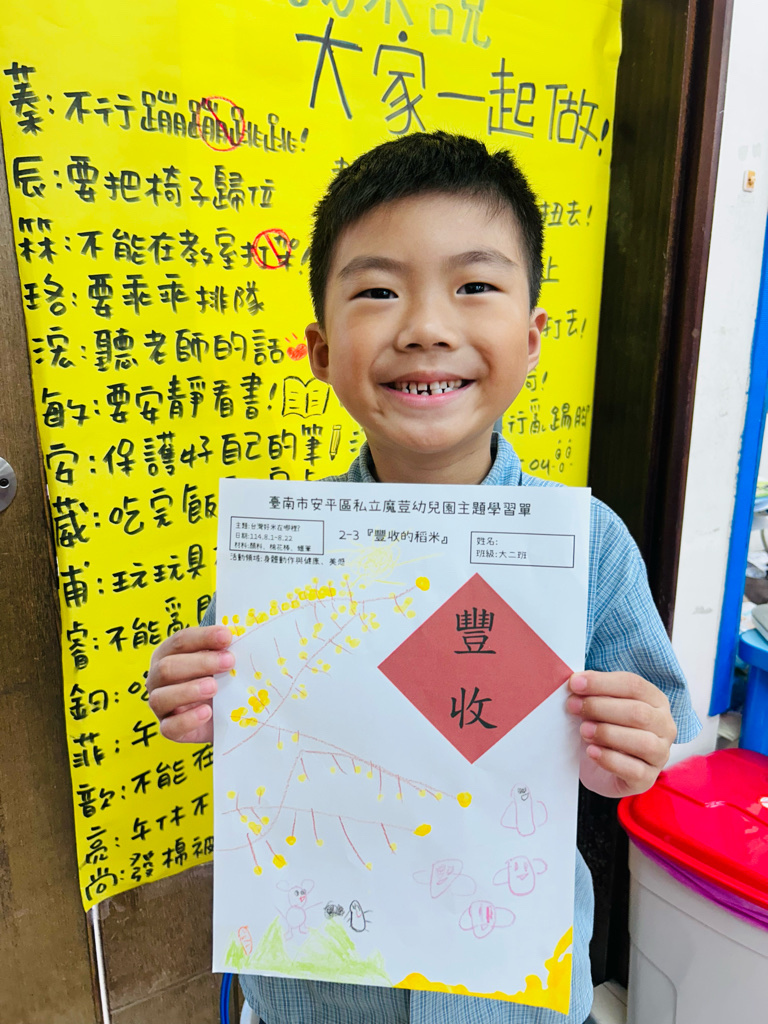 大家一起做!
蓁:不行蹦蹦跳跳!
辰:要把椅子歸位
箖:不能在教室打架
珞:要乖乖排隊
浤:聽老師的話
敏:要安靜看書!
安:保護好自己的筆
葳:吃完飯
甫:玩玩具
睿:不能亂
鈞:
菲:午
歆:不能在
亮:午休不
尚:發棉被
扭去!
上
打去!
行亂踢腳
臺南市安平區私立魔荳幼兒園主題學習單
主題:台灣好米在哪裡?
日期:114.8.1-8.22
材料:顏料、棉花棒、蠟筆
2-3『豐收的稻米』
姓名:
班級:大二班
活動領域:身體動作與健康、美感
豐
收